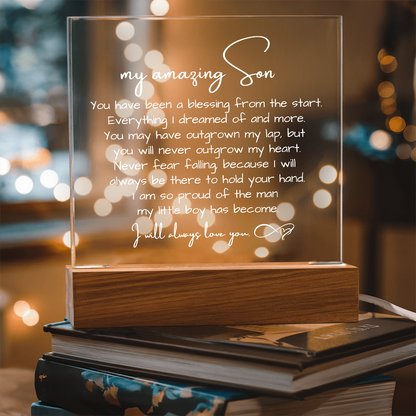 my amazing Son
You have been a blessing from the start.
Everything I dreamed of and more.
You may have outgrown my lap, but
you will never outgrow my heart.
Never fear falling, because I will
always be there to hold your hand.
I am so proud of the man
my little boy has become
I will always love you.